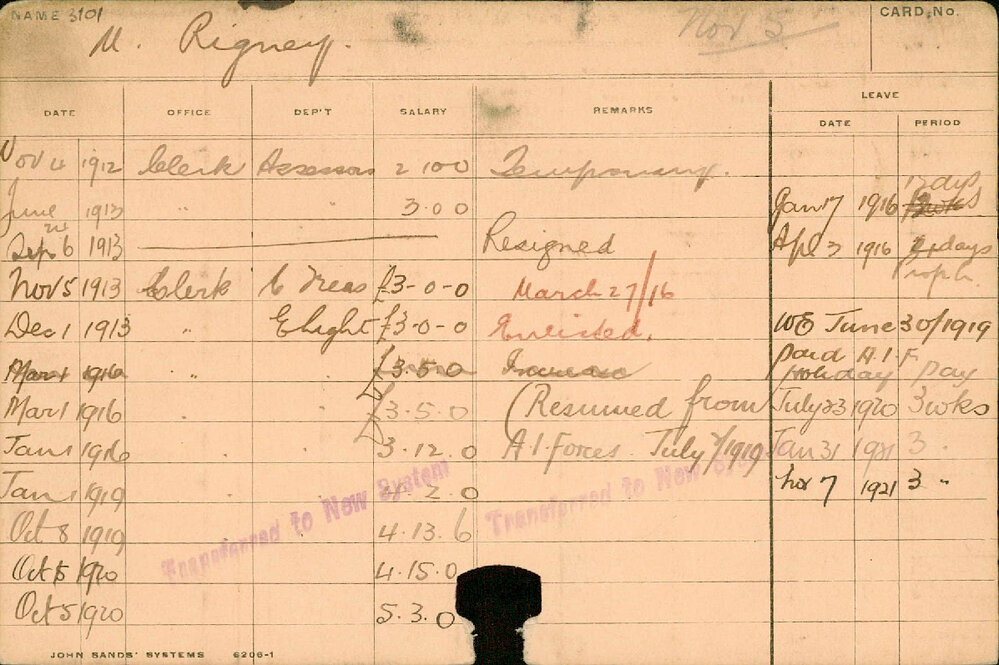 NAME 3101 CARD NO.
M. Rigney. Nov. 5
LEAVE
DATE OFFICE DEP'T SALARY REMARKS DATE PERIOD
Nov 4 1912 Clerk Assessors 2 10 0 Temporary.
12 days
June 1913 " " 3.0 0 Jan 17 1916
Sep. 6 1913 Resigned Apl 3 1916 days
Nov 5 1913 Clerk C Treas £3-0-0 March 27/16
Dec 1 1913 " E Light £3-0-0 Enlisted. WE June 30/1919
Mar 1 1916 " " £3.5.0 Increase paid A.I.F.
Holiday Pay
Mar 1 1916 " " £3.5.0 (Resumed from July 23 1920 3 wks
Jan 1 1916 " " 3.12.0 A.I. Forces July 7/1919 Jan 31 1921 3 "
Jan 1 1919 4.2.0 Nov 7 1921 3 "
Transferred to New System Transferred to New
Oct 8 1919 4.13.6
Oct 5 1920 4.15.0
Oct 5 1920 5.3.0
JOHN SANDS' SYSTEMS 6206-1